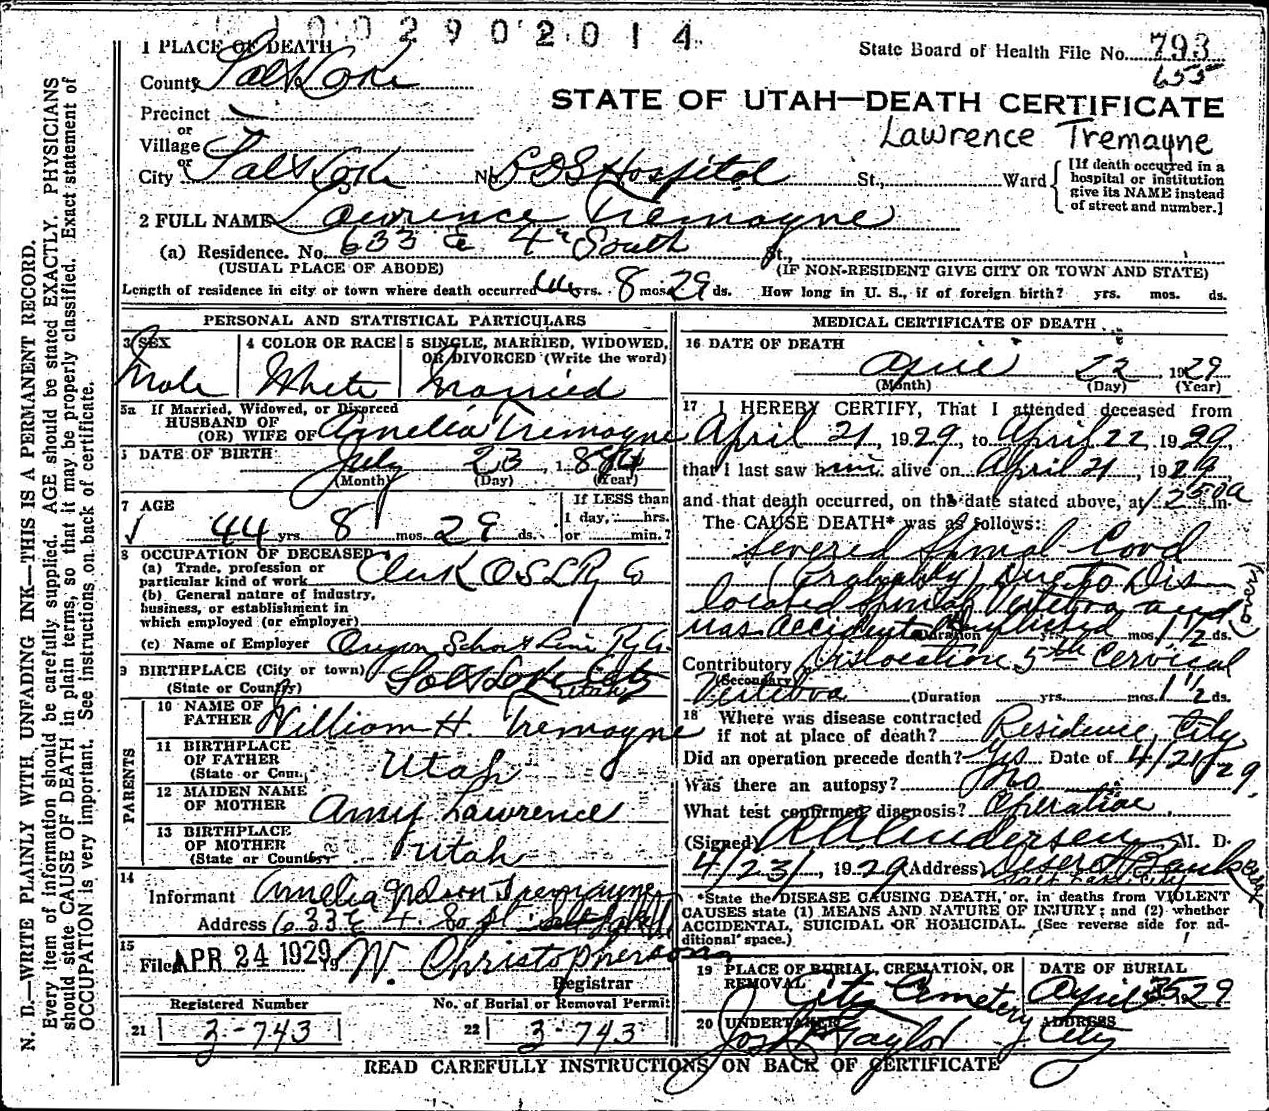 0 0 2 9 0 2 0 1 4
1 PLACE OF DEATH
State Board of Health File No. 793
655
County Salt Lake
STATE OF UTAH—DEATH CERTIFICATE
Precinct
or
Village
Lawrence Tremayne
or
City Salt Lake No. LDS Hospital St., Ward
[If death occurred in a hospital or institution give its NAME instead of street and number.]
2 FULL NAME Lawrence Tremayne
(a) Residence. No. 633 E 4th South St.,
(USUAL PLACE OF ABODE) (IF NON-RESIDENT GIVE CITY OR TOWN AND STATE)
Length of residence in city or town where death occurred 44 yrs. 8 mos. 29 ds. How long in U. S., if of foreign birth? yrs. mos. ds.
PERSONAL AND STATISTICAL PARTICULARS
3 SEX
Male
4 COLOR OR RACE
White
5 SINGLE, MARRIED, WIDOWED, OR DIVORCED (Write the word)
Married
5a If Married, Widowed, or Divorced
HUSBAND OF
(OR) WIFE OF Amelia Tremayne
6 DATE OF BIRTH July 23, 1884
(Month) (Day) (Year)
7 AGE
44 yrs 8 mos. 29 ds.
If LESS than
1 day, hrs.
or min.?
8 OCCUPATION OF DECEASED
(a) Trade, profession or
particular kind of work Clerk OSLR
(b) General nature of industry,
business, or establishment in
which employed (or employer)
(c) Name of Employer Oregon Short Line R
9 BIRTHPLACE (City or town) Salt Lake City
(State or Country) Utah
PARENTS
10 NAME OF
FATHER William H. Tremayne
11 BIRTHPLACE
OF FATHER
(State or Coun. Utah
12 MAIDEN NAME
OF MOTHER Amy Lawrence
13 BIRTHPLACE
OF MOTHER
(State or Country) Utah
14
Informant Amelia Nelson Tremayne
Address 633 E 4 So St Salt Lake
15
Filed APR 24 1929 19 W. Christopherson
Registrar
Registered Number No. of Burial or Removal Permit
21 3-743 22 3-743
MEDICAL CERTIFICATE OF DEATH
16 DATE OF DEATH
April 22 1929
(Month) (Day) (Year)
17 I HEREBY CERTIFY, That I attended deceased from
April 21, 1929, to April 22 1929,
that I last saw him alive on April 21, 1929
and that death occurred, on the date stated above, at 1250a m.
The CAUSE DEATH* was as follows:
Severed Spinal Cord
(Probably) Due to Dis-
located Spinal Vertebra and (over)
was accidently inflicted
(Duration yrs. mos. 1 1/2 ds.
Contributory Dislocation 5th Cervical
(Secondary)
Vertebra (Duration yrs. mos. 1 1/2 ds.
18 Where was disease contracted
if not at place of death? Residence, City
Did an operation precede death? Yes Date of 4/21/29.
Was there an autopsy? No
What test confirmed diagnosis? Operation
(Signed) Andersen M. D.
4/23/, 1929 (Address) Deseret Bank
Salt Lake City
*State the DISEASE CAUSING DEATH, or, in deaths from VIOLENT
CAUSES state (1) MEANS AND NATURE OF INJURY; and (2) whether
ACCIDENTAL, SUICIDAL OR HOMICIDAL. (See reverse side for ad-
ditional space.)
19 PLACE OF BURIAL, CREMATION, OR
REMOVAL
City Cemetery
DATE OF BURIAL
April 25 29
20 UNDERTAKER
Jos Taylor
ADDRESS
City
READ CAREFULLY INSTRUCTIONS ON BACK OF CERTIFICATE
N. B.—WRITE PLAINLY WITH UNFADING INK—THIS IS A PERMANENT RECORD.
Every item of information should be carefully supplied. AGE should be stated EXACTLY. PHYSICIANS
should state CAUSE OF DEATH in plain terms, so that it may be properly classified. Exact statement of
OCCUPATION is very important. See instructions on back of certificate.